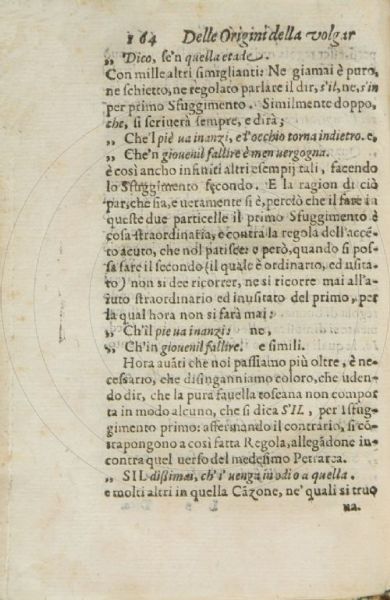 164 Delle Origini della volgar
„ Dico, se'n quella etade.
Con mille altri simiglianti: Ne giamai è puro,
ne schietto, ne regolato parlare il dir, s'il, ne, s'in
per primo Sfuggimento. Similmente doppo,
che, si scriverà sempre, e dirà;
„ Che'l piè va inanzi, e l'occhio torna indietro. e,
„ Che'n giovenil fallire è men vergogna.
è così ancho infiniti altri esempij tali, facendo
lo Sfuggimento secondo. E la ragion di ciò
par, che sia, e veramente si è, perciò che il fare in
queste due particelle il primo Sfuggimento è
cosa straordinaria, e contra la regola dell'accē-
to acuto, che nol patisce: e però, quando si pos-
sa fare il secondo (il quale è ordinario, ed usita-
to) non si dee ricorrer, ne si ricorre mai all'a-
iuto straordinario ed inusitato del primo, per
la qual hora non si farà mai:
„ Ch'il pie va inanzi: ne,
„ Ch'in giovenil fallire. e simili.
Hora avāti che noi passiamo più oltre, è ne-
cessario, che disinganniamo coloro, che uden-
do dir, che la pura favella toscana non compor
ta in modo alcuno, che si dica S'IL, per lsfug-
gimento primo: affermando il contrario, si cō-
trapongono a così fatta Regola, allegādone in-
contra quel verso del medesimo Petrarca.
„ SIL dissimai, ch'i' venga in odio a quella.
e molti altri in quella Cāzone, ne' quali si truo
va.